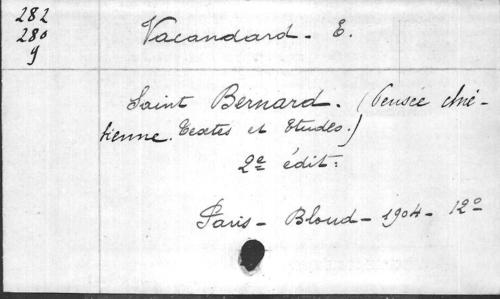 282
280
9
Vacandard - E.
Saint Bernard. (Pensée chré-
tienne. Textes et Etudes.)
2e édit.
Paris - Bloud - 1904 - 12o